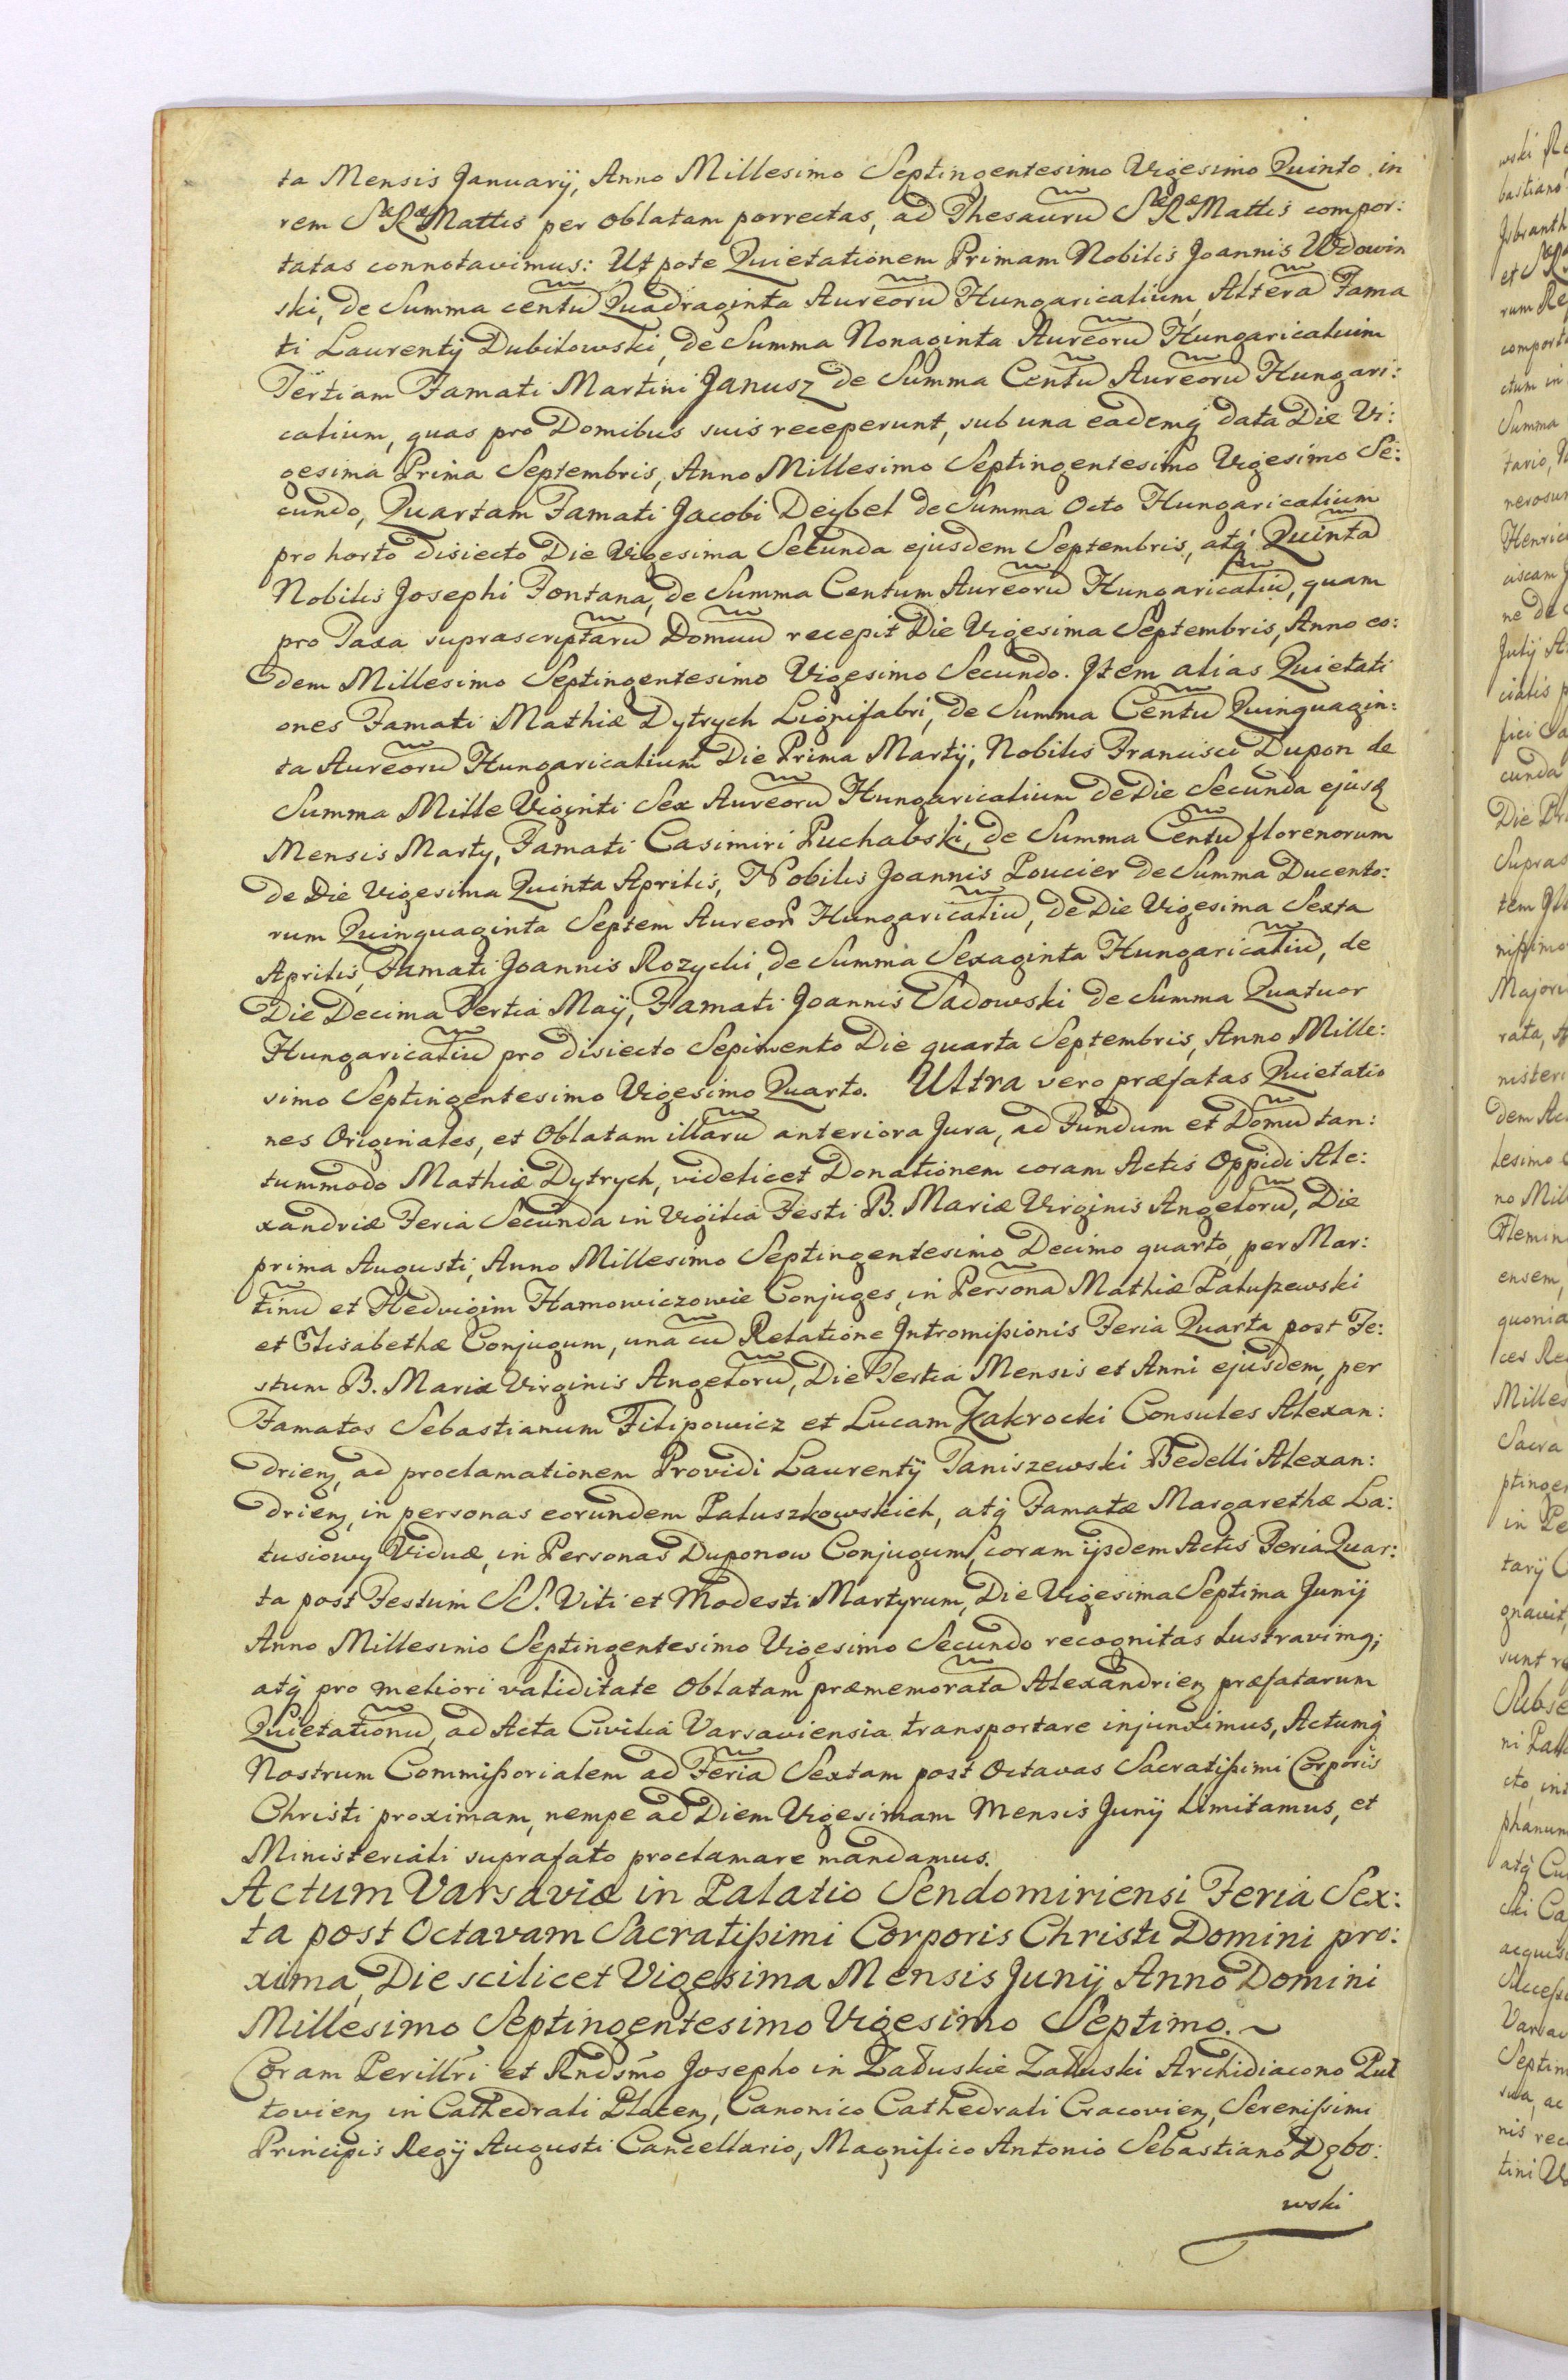 ta Mensis Januarij, Anno Millesimo Septingentesimo Vigesimo Quinto in
rem Sæ Ræ Mattis per oblatam porrectas, ad Thesauru̅ Sæ Ræ Mattis compor:
tatas connotavimus: Ut pote Quietationem Primam Nobilis Joannis Wdowin
ski, de Summa centu̅ Quadraginta Aureoru̅ Hungaricalium, Altera̅ Fama
ti Laurentij Dubilowski, de Summa Nonaginta Aureoru̅ Hungaricalium
Tertiam Famati Martini Janusz de Summa Centu̅ Aureoru̅ Hungari:
calium, quas pro Domibus suis receperunt, sub una eademq́ data Die Vi:
gesima Prima Septembris, Anno Millesimo Septingentesimo Vigesimo Se:
cundo, Quartam Famati Jacobi Deybel de Summa Octo Hungaricalium
pro horto disiecto Die Vigesima Secunda ejusdem Septembris, atq́ Quinta̅
Nobilis Josephi Fontana, de Summa Centum Aureoru̅ Hungaricaliu̅, quam
pro Taxa suprascriptaru̅ Domuu̅ recepit Die Vigesima Septembris, Anno eo:
dem Millesimo Septingentesimo Vigesimo Secundo. Item alias Quietati
ones Famati Mathiæ Dytrych Lignifabri, de Summa Centu̅ Quinquagin:
ta Aureoru̅ Hungaricalium Die Prima Martij, Nobilis Francisci Dupon de
Summa Mille Viginti Sex Aureoru̅ Hungaricalium de Die Secunda ejusq
Mensis Marty, Famati Casimiri Puchalski, de Summa Centu̅ florenorum
de Die Vigesima Quinta Aprilis, Nobilis Joannis Poucier de Summa Ducento:
rum Quinquaginta Septem Aureor Hungaricaliu̅, de Die Vigesima Sexta
Aprilis, Famati Joannis Rozycki, de Summa Sexaginta Hungaricaliu̅, de
Die Decima Tertia Maij, Famati Joannis Sadowski de Summa Quatuor
Hungaricaliu̅ pro disiecto Sepimento Die quarta Septembris, Anno Mille:
simo Septingentesimo Vigesimo Quarto. Ultra vero præfatas Quietatio
nes Originales, et Oblatam illaru̅ anteriora Jura, ad Fundum et Domu̅ tan:
tummodo Mathiæ Dytrych, videlicet Donationem coram Actis Oppidi Ale:
xandriæ Feria Secunda in Vigilia Festi B. Mariæ Virginis Angeloru̅, Die
prima Augusti, Anno Millesimo Septingentesimo Decimo quarto, per Mar:
tinu̅ et Hedvigim Hamowiczowie Conjuges, in Persona̅ Mathiæ Paluszewski
et Elisabethæ Conjugum, una cu̅ Relatione Intromißionis Feria Quarta post Fe:
stum B. Mariæ Virginis Angeloru̅, Die Tertia Mensis et Anni ejusdem, per
Famatos Sebastianum Filipowicz et Lucam Zakrocki Consules Alexan:
drienȝ, ad proclamationem Providi Laurentij Janiszewski Bedelli Alexan:
drienȝ, in personas eorundem Paluszkowskich, atq́ Famatæ Margarethæ La:
tusiowy Viduæ, in Personas Duponow Conjugum, coram ijsdem Actis Feria Quar:
ta post Festum SS. Viti et Modesti Martyrum, Die Vigesima Septima Junij
Anno Millesimo Septingentesimo Vigesimo Secundo recognitas lustravimq;
atq́ pro meliori validitate Oblatam præmemorata̅ Alexandrienȝ præfatarum
Quietationu̅, ad Acta Civilia Varsaviensia transportare injunximus, Actumq́
Nostrum Commißorialem ad Feria̅ Sextam post Octavas Sacratißimi Corporis
Christi proximam, nempe ad Diem Vigesimam Mensis Junij Limitamus, et
Ministeriali suprafato proclamare mandamus.
Actum Varsaviæ in Palatio Sendomiriensi Feria Sex:
ta post Octavam Sacratißimi Corporis Christi Domini pro:
xima, Die scilicet Vigesima Mensis Junij Anno Domini
Millesimo Septingentesimo Vigesimo Septimo.~
Coram Perillr̅i et Rndsm̅o Josepho in Załuskie Załuski Archidiacono Pul
tovienȝ in Cathedrali Plocenȝ, Canonico Cathedrali Cracovienȝ, Serenißimi
Principis Regij Augusti Cancellario, Magnifico Antonio Sebastiano Dębo:
wski